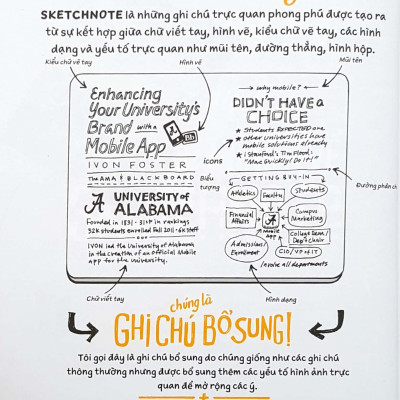 SKETCHNOTE là những ghi chú trực quan phong phú được tạo ra
từ sự kết hợp giữa chữ viết tay, hình vẽ, kiểu chữ vẽ tay, các hình
dạng và yếu tố trực quan như mũi tên, đường thẳng, hình hộp.
Kiểu chữ vẽ tay
Hình vẽ
Mũi tên
Enhancing
Your University's
Brand with a
Mobile App
IVON FOSTER
The AMA & BLACKBOARD
UNIVERSITY of
ALABAMA
Founded in 1831 - 31st in rankings
32K students enrolled Fall 2011 - 6K staff
IVON led the University of Alabama
in the creation of an official Mobile
app for the University.
icons
Biểu
tượng
why mobile?
DIDN'T HAVE a
CHOICE
★ Students EXPECTED one
★ other universities have
mobile solutions already
★ (Stanford's Tim Flood:
"Move Quickly! Do it!"
GETTING BUY-IN
Đường phân cách
Athletics
Faculty
Students
Financial
Affairs
A
MOBILE
APP
Campus
Marketing
Admissions/
Enrollment
College Dean/
Dep't Chair
CIO/VP of IT
Involve all departments
Chữ viết tay
Hình dạng
chúng là
GHI CHÚ BỔ SUNG!
Tôi gọi đây là ghi chú bổ sung do chúng giống như các ghi chú
thông thường nhưng được bổ sung thêm các yếu tố hình ảnh trực
quan để mở rộng các ý.